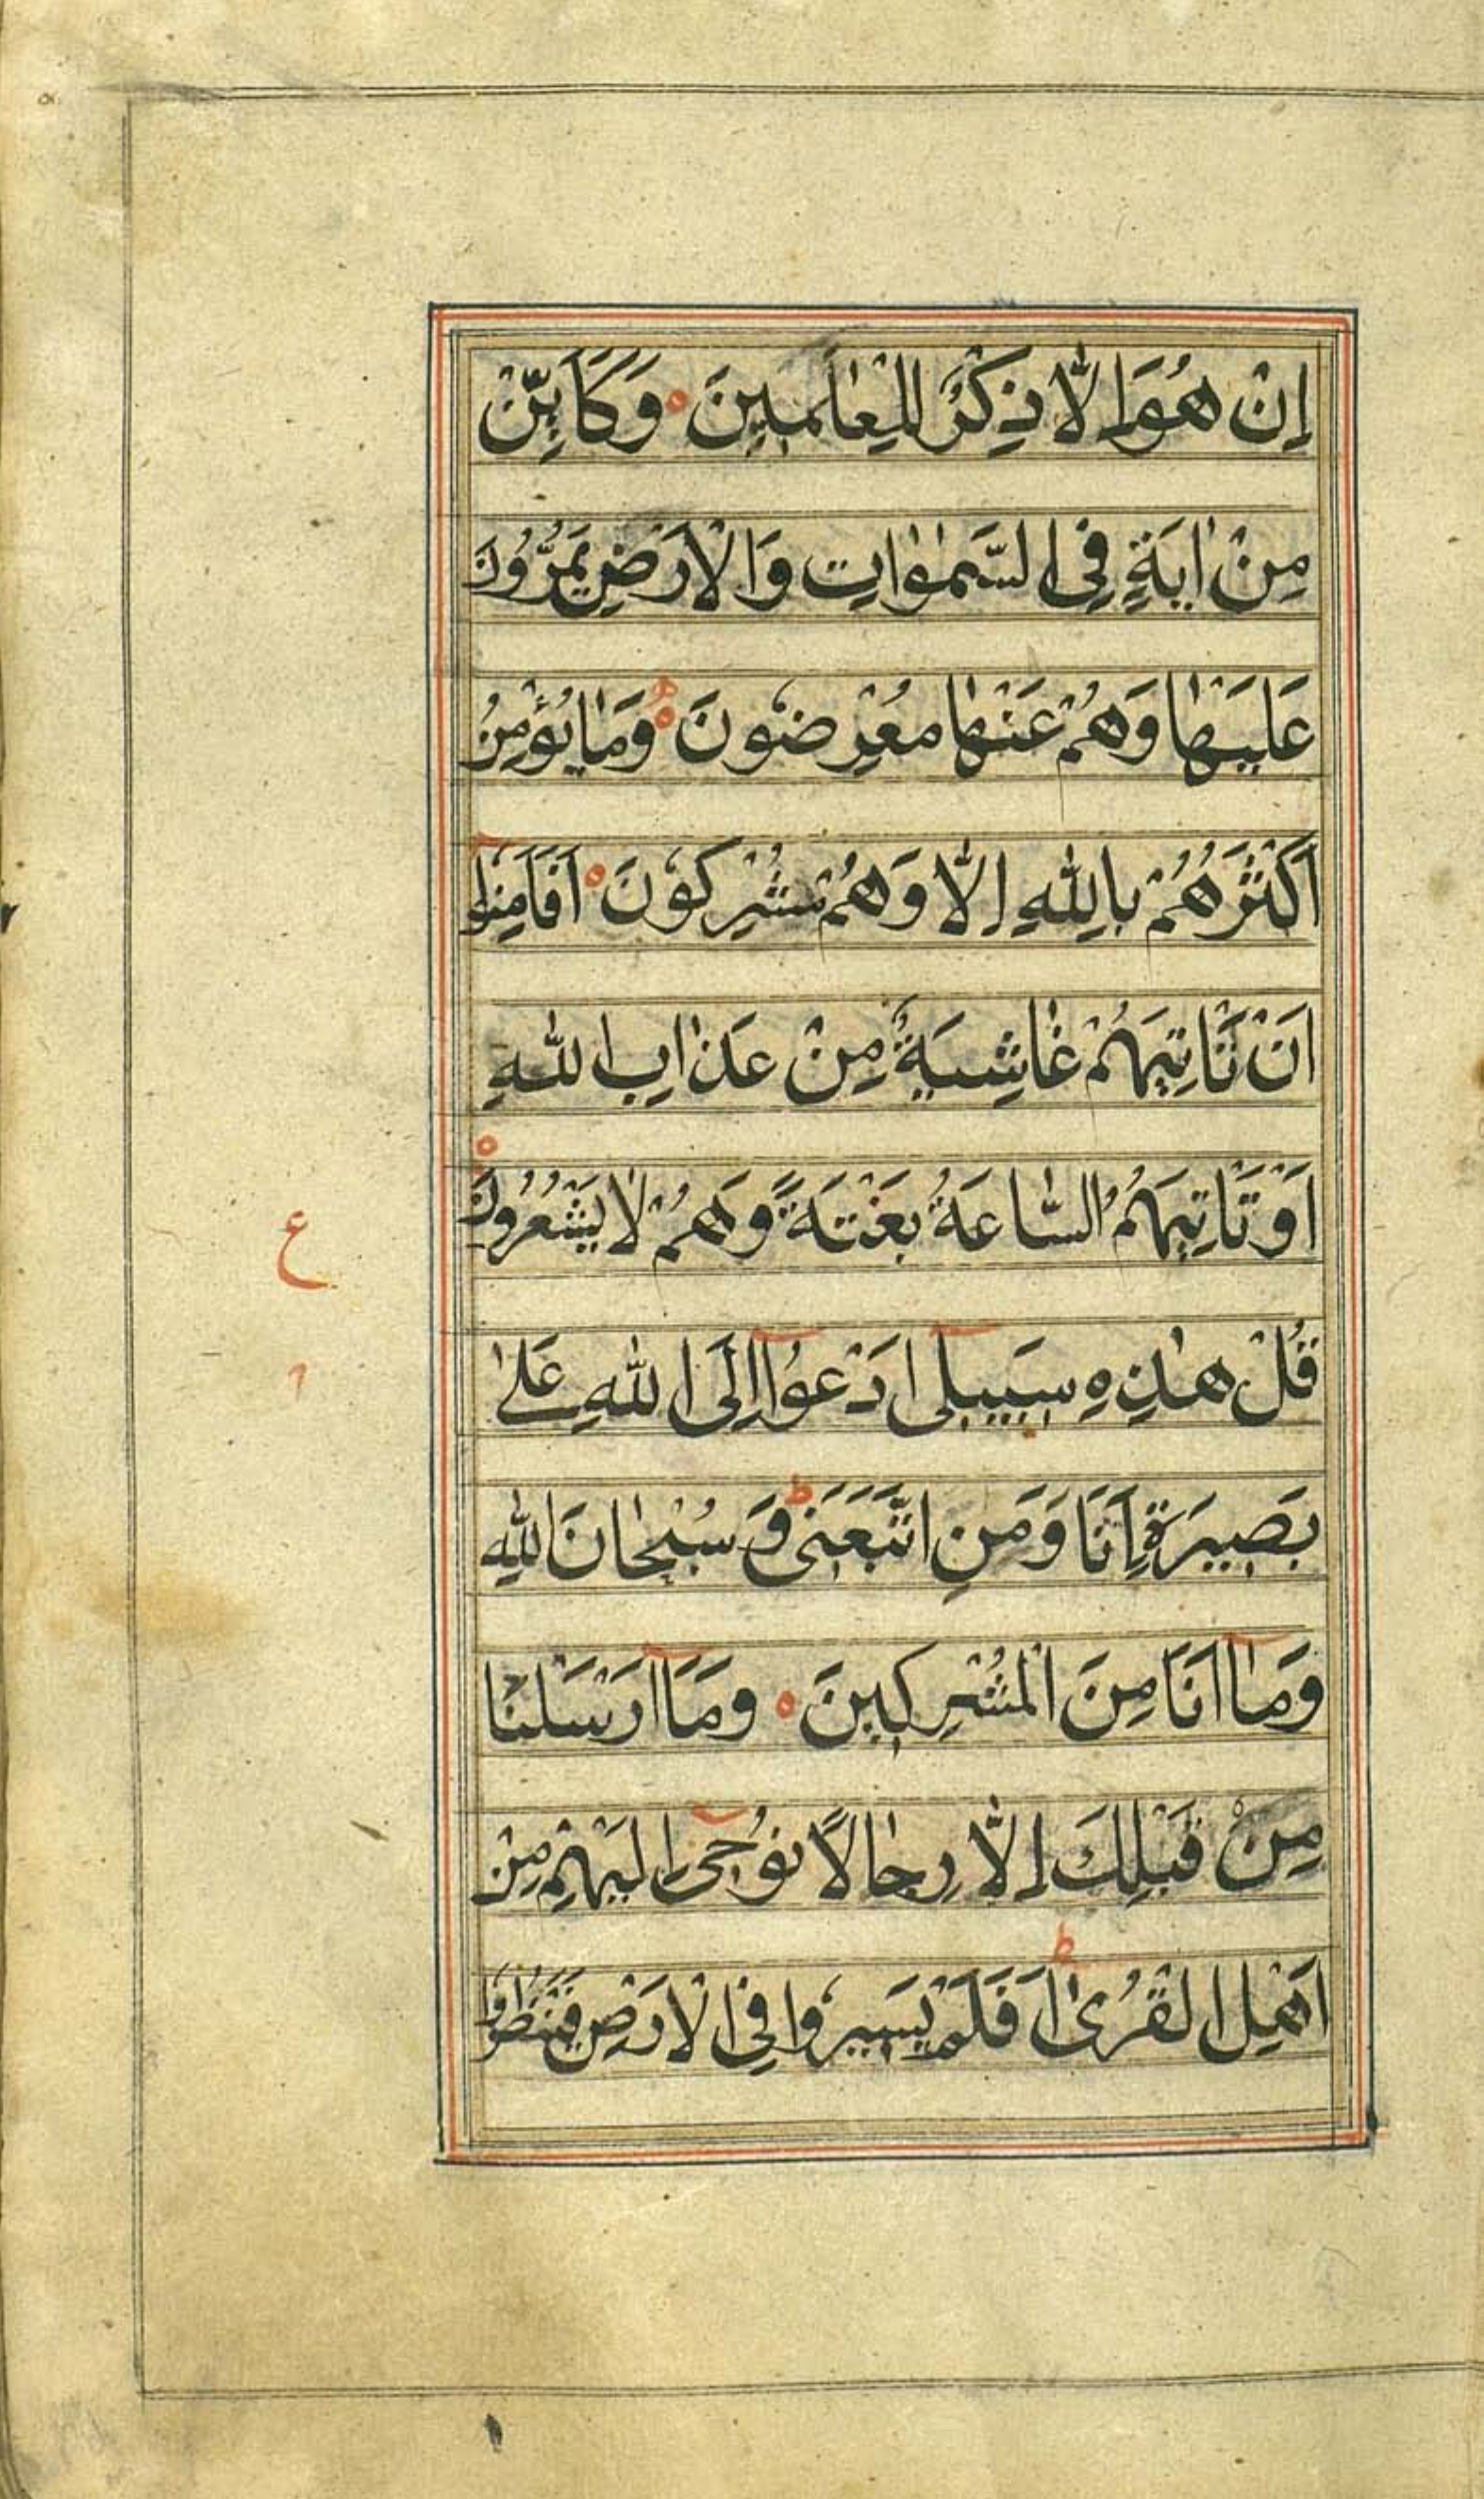 اِنْ هُوَ اِلَّا ذِكْرٌ لِلْعٰالَمِينَ وَكَاَيِّنْ
مِنْ اٰيَةٍ فِي السَّمٰوٰاتِ وَالْاَرْضِ يَمُرُّونَ
عَلَيْهٰا وَهُمْ عَنْهٰا مُعْرِضُونَ وَمٰا يُؤْمِنُ
اَكْثَرُهُمْ بِاللّٰهِ اِلَّا وَهُمْ مُشْرِكُونَ اَفَاَمِنُوا
اَنْ تَأْتِيَهُمْ غٰاشِيَةٌ مِنْ عَذٰابِ اللّٰهِ
اَوْ تَأْتِيَهُمُ السّٰاعَةُ بَغْتَةً وَهُمْ لٰا يَشْعُرُونَ
ع
قُلْ هٰذِهِ سَبِيلِي اَدْعُوا اِلَى اللّٰهِ عَلٰى
بَصِيرَةٍ اَنَا وَمَنِ اتَّبَعَنِي وَسُبْحٰانَ اللّٰهِ
وَمٰا اَنَا مِنَ الْمُشْرِكِينَ وَمَا اَرْسَلْنٰا
مِنْ قَبْلِكَ اِلَّا رِجٰالًا نُوحِي اِلَيْهِمْ مِنْ
اَهْلِ الْقُرٰى اَفَلَمْ يَسِيرُوا فِي الْاَرْضِ فَيَنْظُرُوا